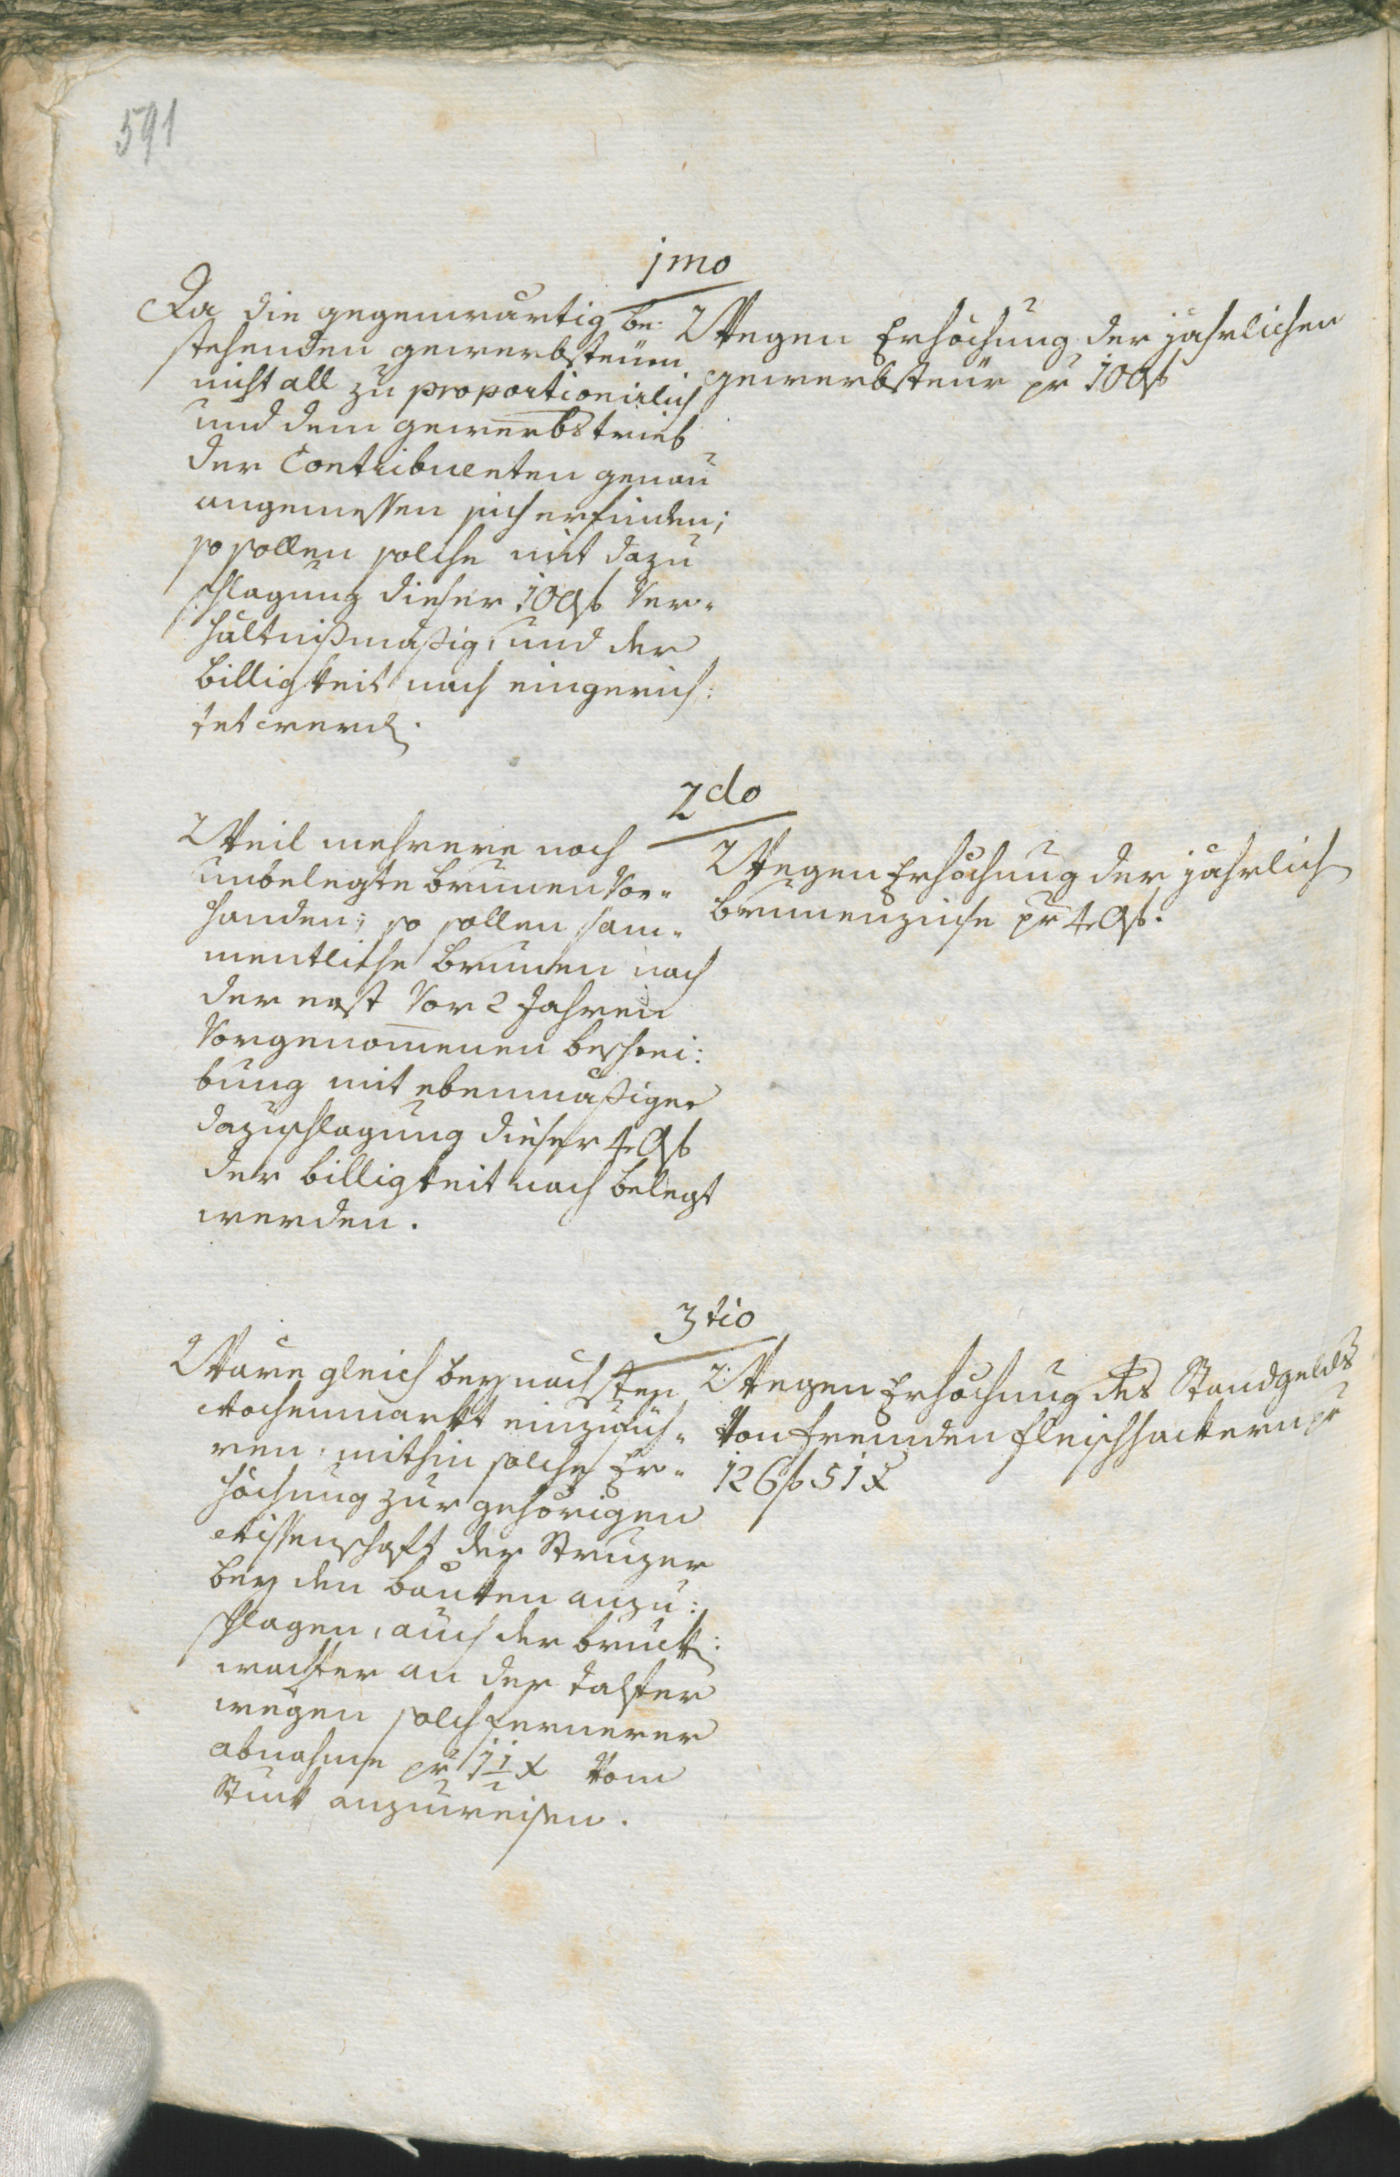 591
1mo
Da die gegenwärtig be:
stehenden gewerbsteüern
nicht all zu proportionirlich
und dem gewerbstrieb
der Contribuenten genau
angemessen sich erfinden;
so sollen solche mit dazu
schlagung dieser 100 f Ver-
hältnißmäßig, und der
billigkeit nach eingerich:
tet werden.
Wegen Erhöchung der jährlichen
gewerbsteür pr 100 f
2do
Weil mehrere noch
unbelegte brunnen Vor-
handen; so sollen sam-
mentliche brunnen nach
der erst Vor 2 Jahren
Vorgenommenen beschrei:
bung mit ebenmäßiger
dazuschlagung dieser 40 f
der billigkeit nach belegt
werden.
Wegen Erhöchung der jährlichen
brunnenzinse pr 40 f.
3tio
Wäre gleich bey nächsten
Wochenmarkt einzufüh-
ren, mithin solche Er-
höchung zur gehörigen
Wissenschaft der
bey den bänken anzu:
schlagen, auch der bruck:
wachter an der talfer
wegen solch fernerer
abnahme pr 1 1/2 x Vom
Stuck anzuweisen.
Wegen Erhöchung des Standgelds
Von fremden fleischhackern pr
126 f 51 x